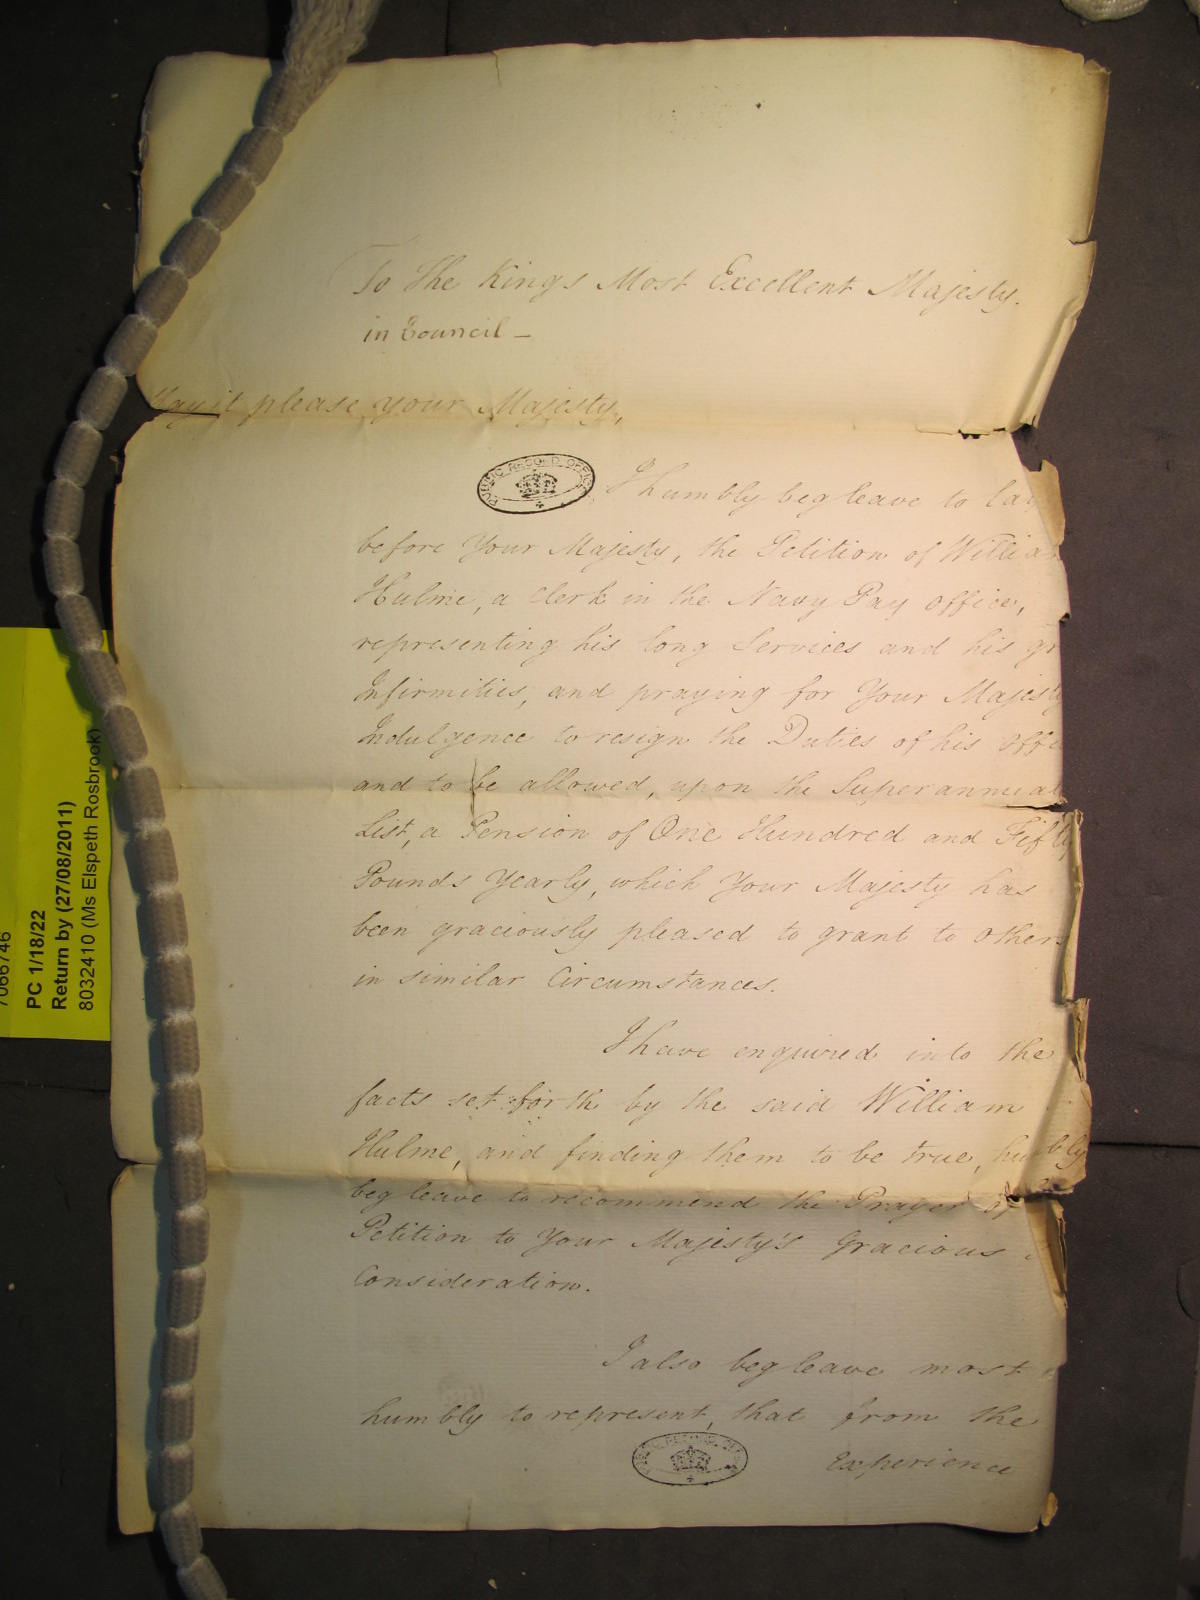 To The Kings Most Excellent Majesty.
in Council -
May it please your Majesty,
PUBLIC RECORD OFFICE
I humbly beg leave to lay
before Your Majesty, the Petition of Willia
Hulme, a Clerk in the Navy Pay Office,
representing his long Services and his gr
Infirmities, and praying for Your Majesty
Indulgence to resign the Duties of his Offi
and to be allowed, upon the Superannuat
List, a Pension of One Hundred and Fifty
Pounds Yearly, which Your Majesty has
been graciously pleased to grant to others
in similar Circumstances.
I have enquired into the
facts set forth by the said William
Hulme, and finding them to be true, humbly
beg leave to recommend the Prayer of
Petition to Your Majesty's Gracious
Consideration.
I also beg leave most
humbly to represent, that from the
Experience
PUBLIC RECORD OFFICE
7066746
PC 1/18/22
Return by (27/08/2011)
8032410 (Ms Elspeth Rosbrook)